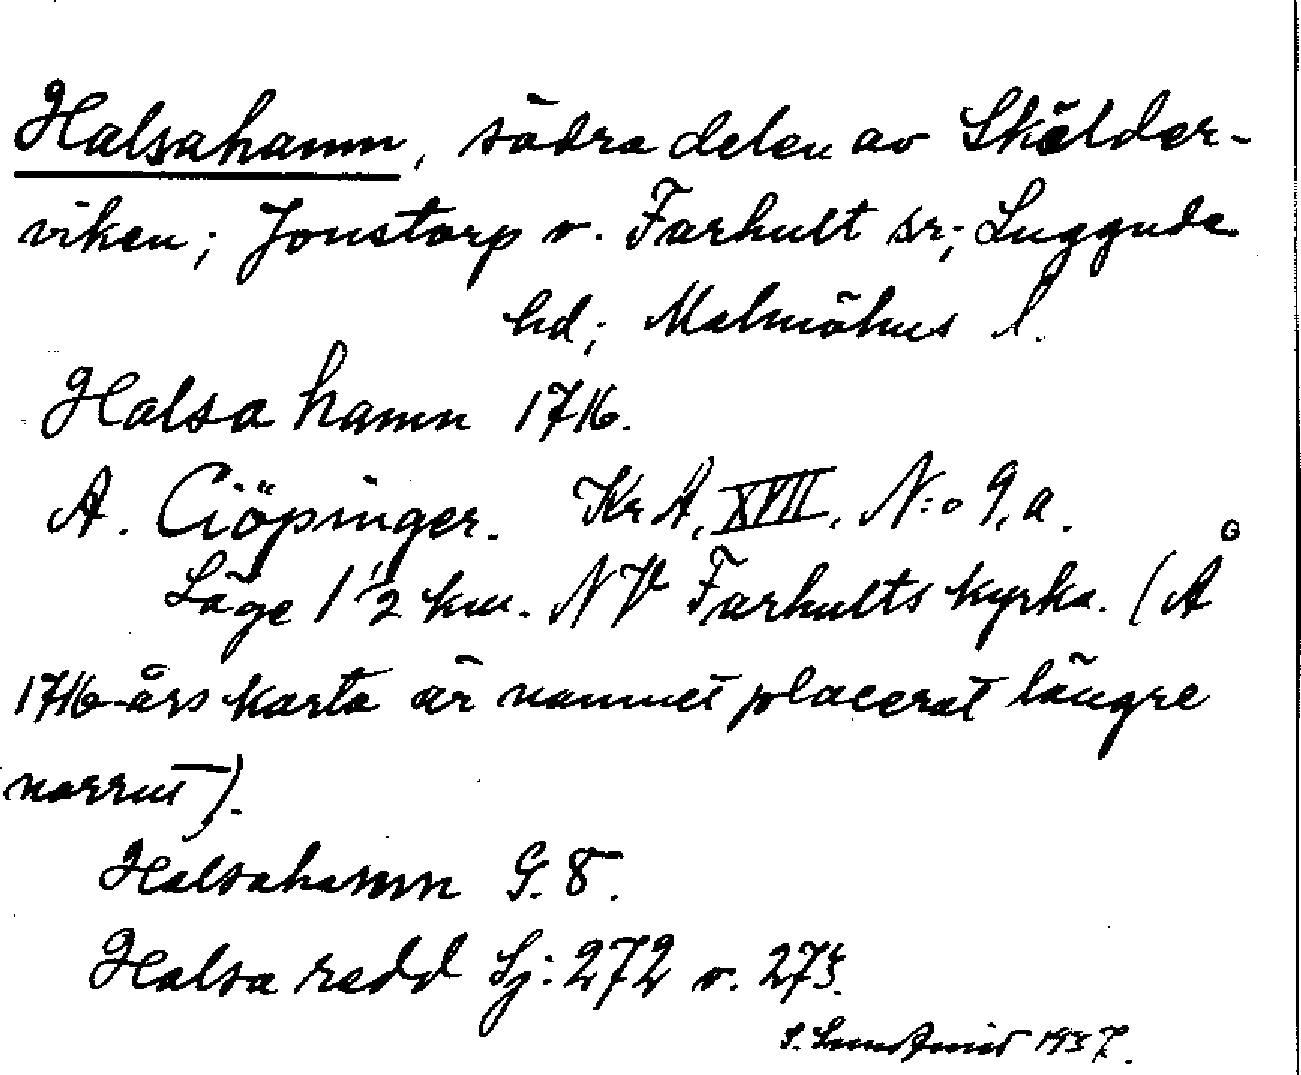 Halsahamn, södra delen av Skälder-
viken; Jonstorp o. Farhult sr; Luggude
hd; Malmöhus l.
Halsa hamn 1716.
A. Ciöpinger. Kr A, XVII, N:o 9, a.
Läge 1 1/2 km. NV Farhults kyrka. (Å
1716-års karta är namnet placerat längre
norrut).
Halsahamn G. 8.
Halsa redd Sj: 272 o. 275.
S. 1937.